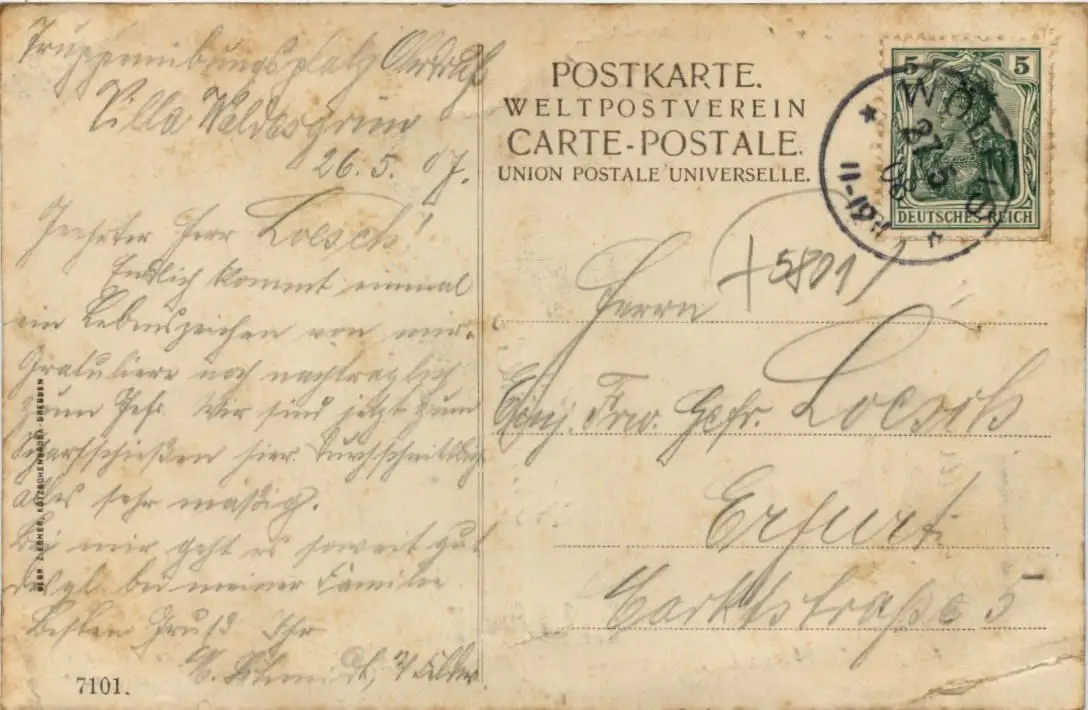 Truppenübungsplatz Ohrdruf
Villa Waldesgrün
26. 5. 07.
Geehrter Herr Loesch!
Endlich kommt einmal
ein Lebenszeichen von mir.
Gratuliere noch nachträglich
zum Gefr. Wir sind jetzt zum
Scharfschießen hier. Durchschnittlich
alles sehr mäßig.
Bei mir geht es soweit gut
desgl. bei meiner Familie
Besten Gruß Ihr
Schmidt,
GEBR. ZERNER, KÖTZSCHENBRODA-DRESDEN
7101.
POSTKARTE.
WELTPOSTVEREIN
CARTE-POSTALE.
UNION POSTALE UNIVERSELLE.
5 5
DEUTSCHES REICH
27 5
11-12
+5801
Herrn
Einj. Frw. Gefr. Loesch
Erfurt
Marktstraße 5